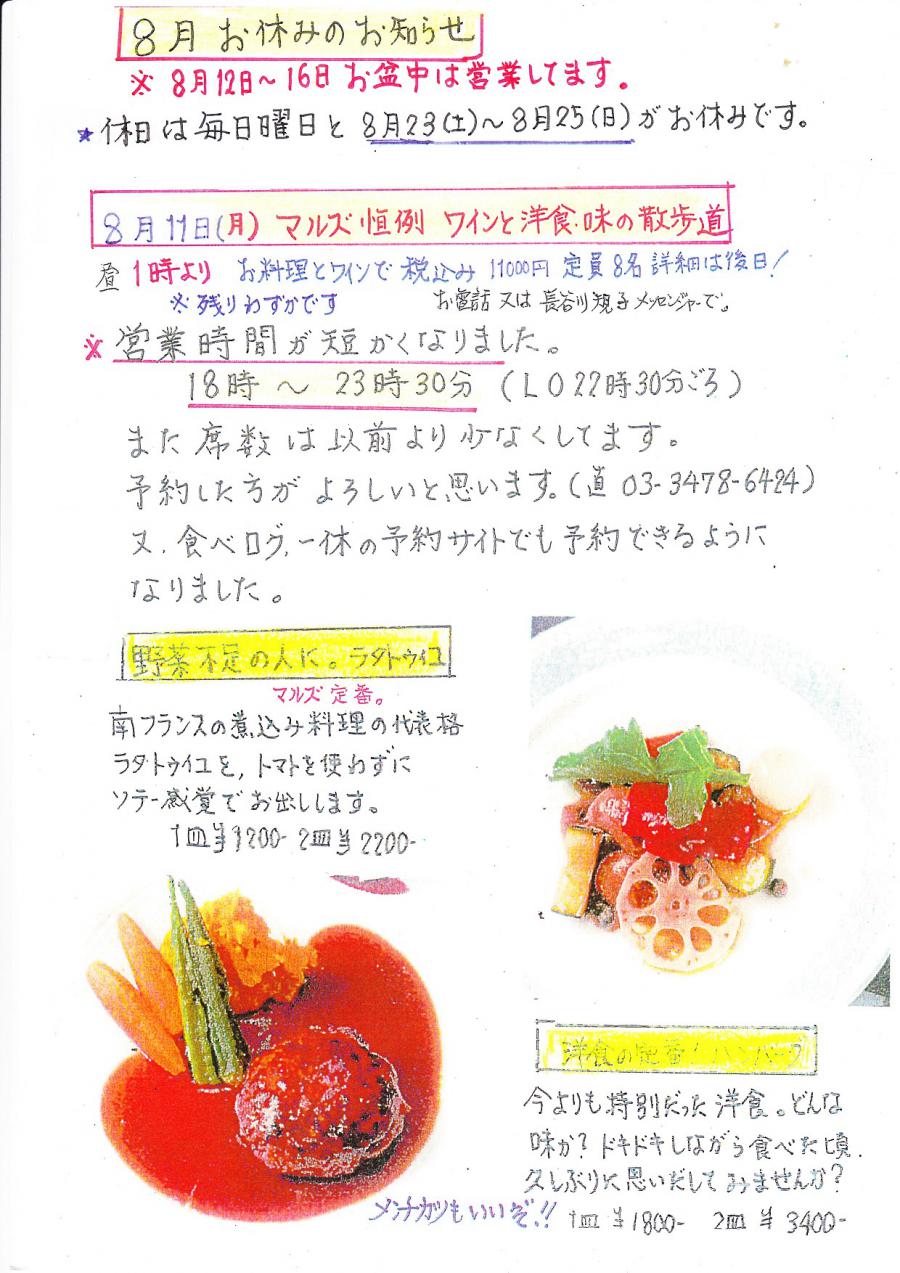 8月 お休みのお知らせ
※ 8月12日〜16日 お盆中は営業してます。
★休日は毎日曜日と 8月23(土)〜8月25(日)がお休みです。
8月11日(月) マルズ恒例 ワインと洋食・味の散歩道
昼 1時より お料理とワインで 税込み 11000円 定員8名 詳細は後日!
※残りわずかです お電話 又は 長谷川規子メッセンジャーで。
※営業時間が短かくなりました。
18時 〜 23時30分 (LO22時30分ごろ)
また席数は以前より少なくしてます。
予約した方がよろしいと思います。(直 03-3478-6424)
又、食べログ、一休の予約サイトでも予約できるように
なりました。
野菜不足の人に。ラタトゥイユ
マルズ定番。
南フランスの煮込み料理の代表格
ラタトゥイユを、トマトを使わずに
ソテー感覚でお出しします。
1皿¥1200- 2皿¥2200-
洋食の定番!ハンバーグ
今よりも特別だった洋食。どんな
味か?ドキドキしながら食べた頃.
久しぶりに思いだしてみませんか?
メンチカツもいいぞ!! 1皿¥1800- 2皿¥3400-